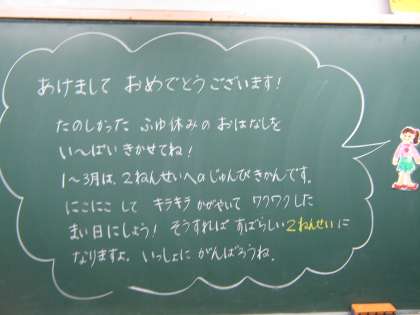 あけまして おめでとうございます!
たのしかった ふゆ休みの おはなしを
い〜ぱい きかせてね!
1〜3月は、2ねんせいへの じゅんび きかんです。
にこにこ して キラキラ かがやいて ワクワクした
まい日にしよう! そうすれば すばらしい2ねんせいに
なりますよ。 いっしょに がんばろうね。